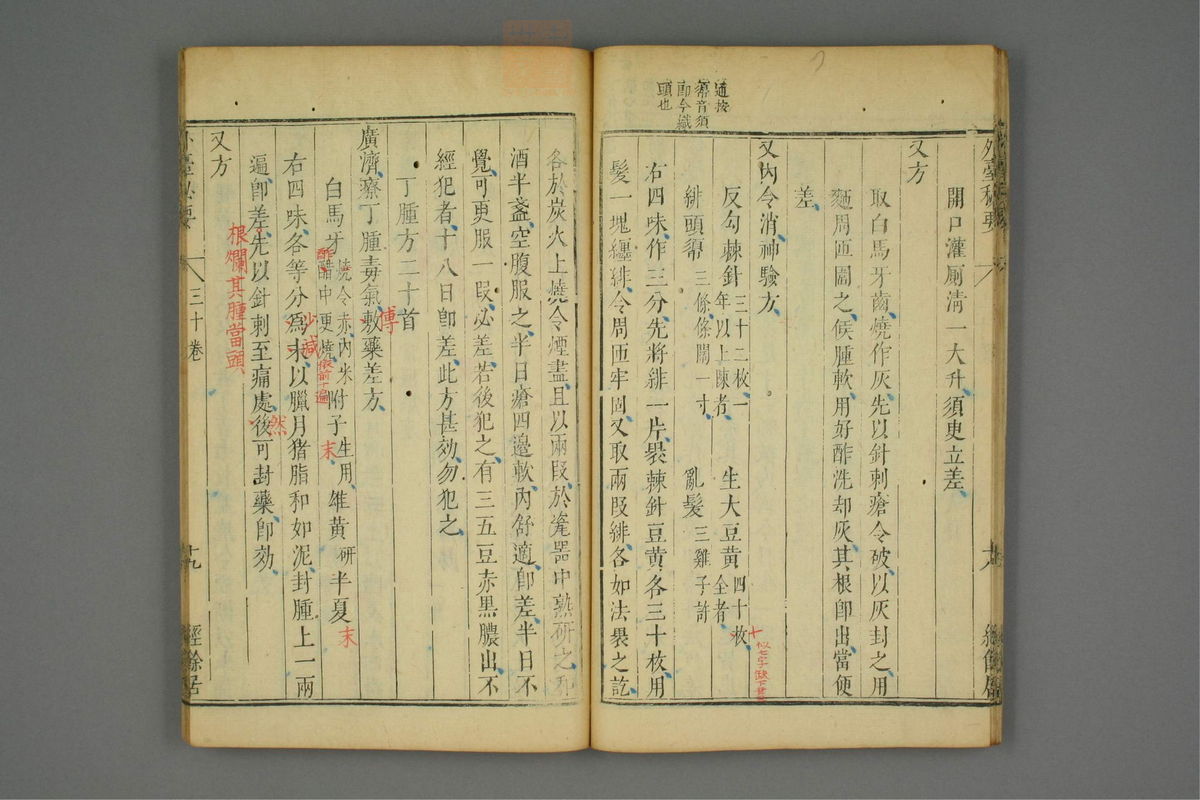 外臺秘要
開口灌厠清一大升須更立差
又方
取白馬牙齒燒作灰先以針刺瘡令破以灰封之用
麵周匝圍之候腫軟用好酢洗却灰其根卽出當便
差
又內令消神驗方
反勾棘針三十二枚一年以上陳者 生大豆黃四十枚全者
十
緋頭𢄼三條條闊一寸 亂髮三雞子許
右四味作三分先將緋一片裹棘針豆黃各三十枚用
髮一塊纏緋令周匝牢固又取兩段緋各如法裹之訖
通按
音須
卽今
頭也
經餘居
各於炭火上燒令煙盡且以兩段於瓷器中熟研之和
酒半盞空腹服之半日瘡四邊軟內舒適卽差半日不
覺可更服一段必差若後犯之有三五豆赤黑膿出不
經犯者十八日卽差此方甚効勿犯之
丁腫方二十首
廣濟療丁腫毒氣敷藥差方
傅
白馬牙燒令赤內米醋中更燒 附子生用 雄黃研 半夏
酢
末
末
右四味各等分爲末以臘月猪脂和如泥封腫上一兩
遍卽差先以針刺至痛處後可封藥卽効
然
根爛其腫當頭
又方
三十卷
十九
經餘居